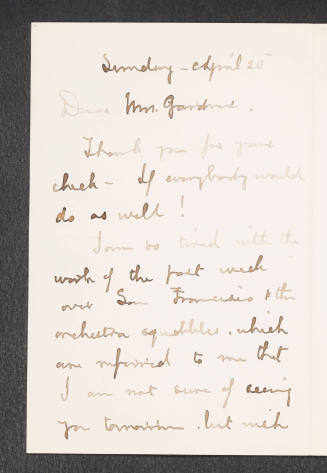 Sunday - April 25
Dear Mrs. Gardner.
Thank you for your
check - If everybody would
do as well!
I am so tired with the
work of the past week
over San Francisco & the
orchestra squabbles, which
are referred to me that
I am not sure of seeing
you tomorrow. but with